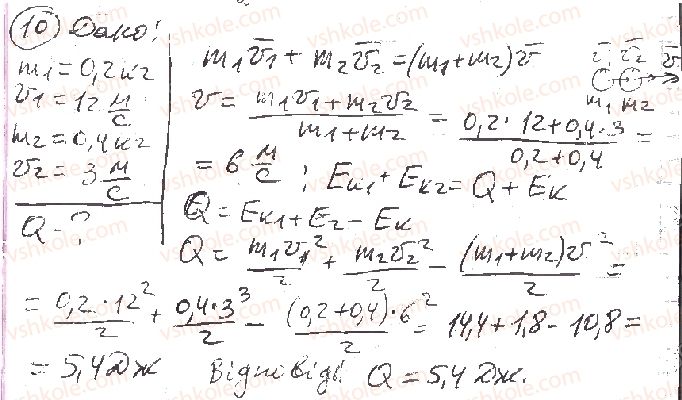 10 Дано:
m₁ = 0,2 кг
v₁ = 12 м/с
m₂ = 0,4 кг
v₂ = 3 м/с
Q - ?
m₁v̄₁ + m₂v̄₂ = (m₁+m₂)v̄
v̄₁ v̄₂ v̄
m₁ m₂
v = (m₁v₁+m₂v₂)/(m₁+m₂) = (0,2·12+0,4·3)/(0,2+0,4) =
= 6 м/с ; Eк₁ + Eк₂ = Q + Eк
Q = Eк₁ + E₂ - Eк
Q = m₁v₁²/2 + m₂v₂²/2 - (m₁+m₂)v²/2 =
= 0,2·12²/2 + 0,4·3³/2 - (0,2+0,4)·6²/2 = 14,4+1,8-10,8=
= 5,4 Дж Відповідь: Q = 5,4 Дж.
vshkole.com